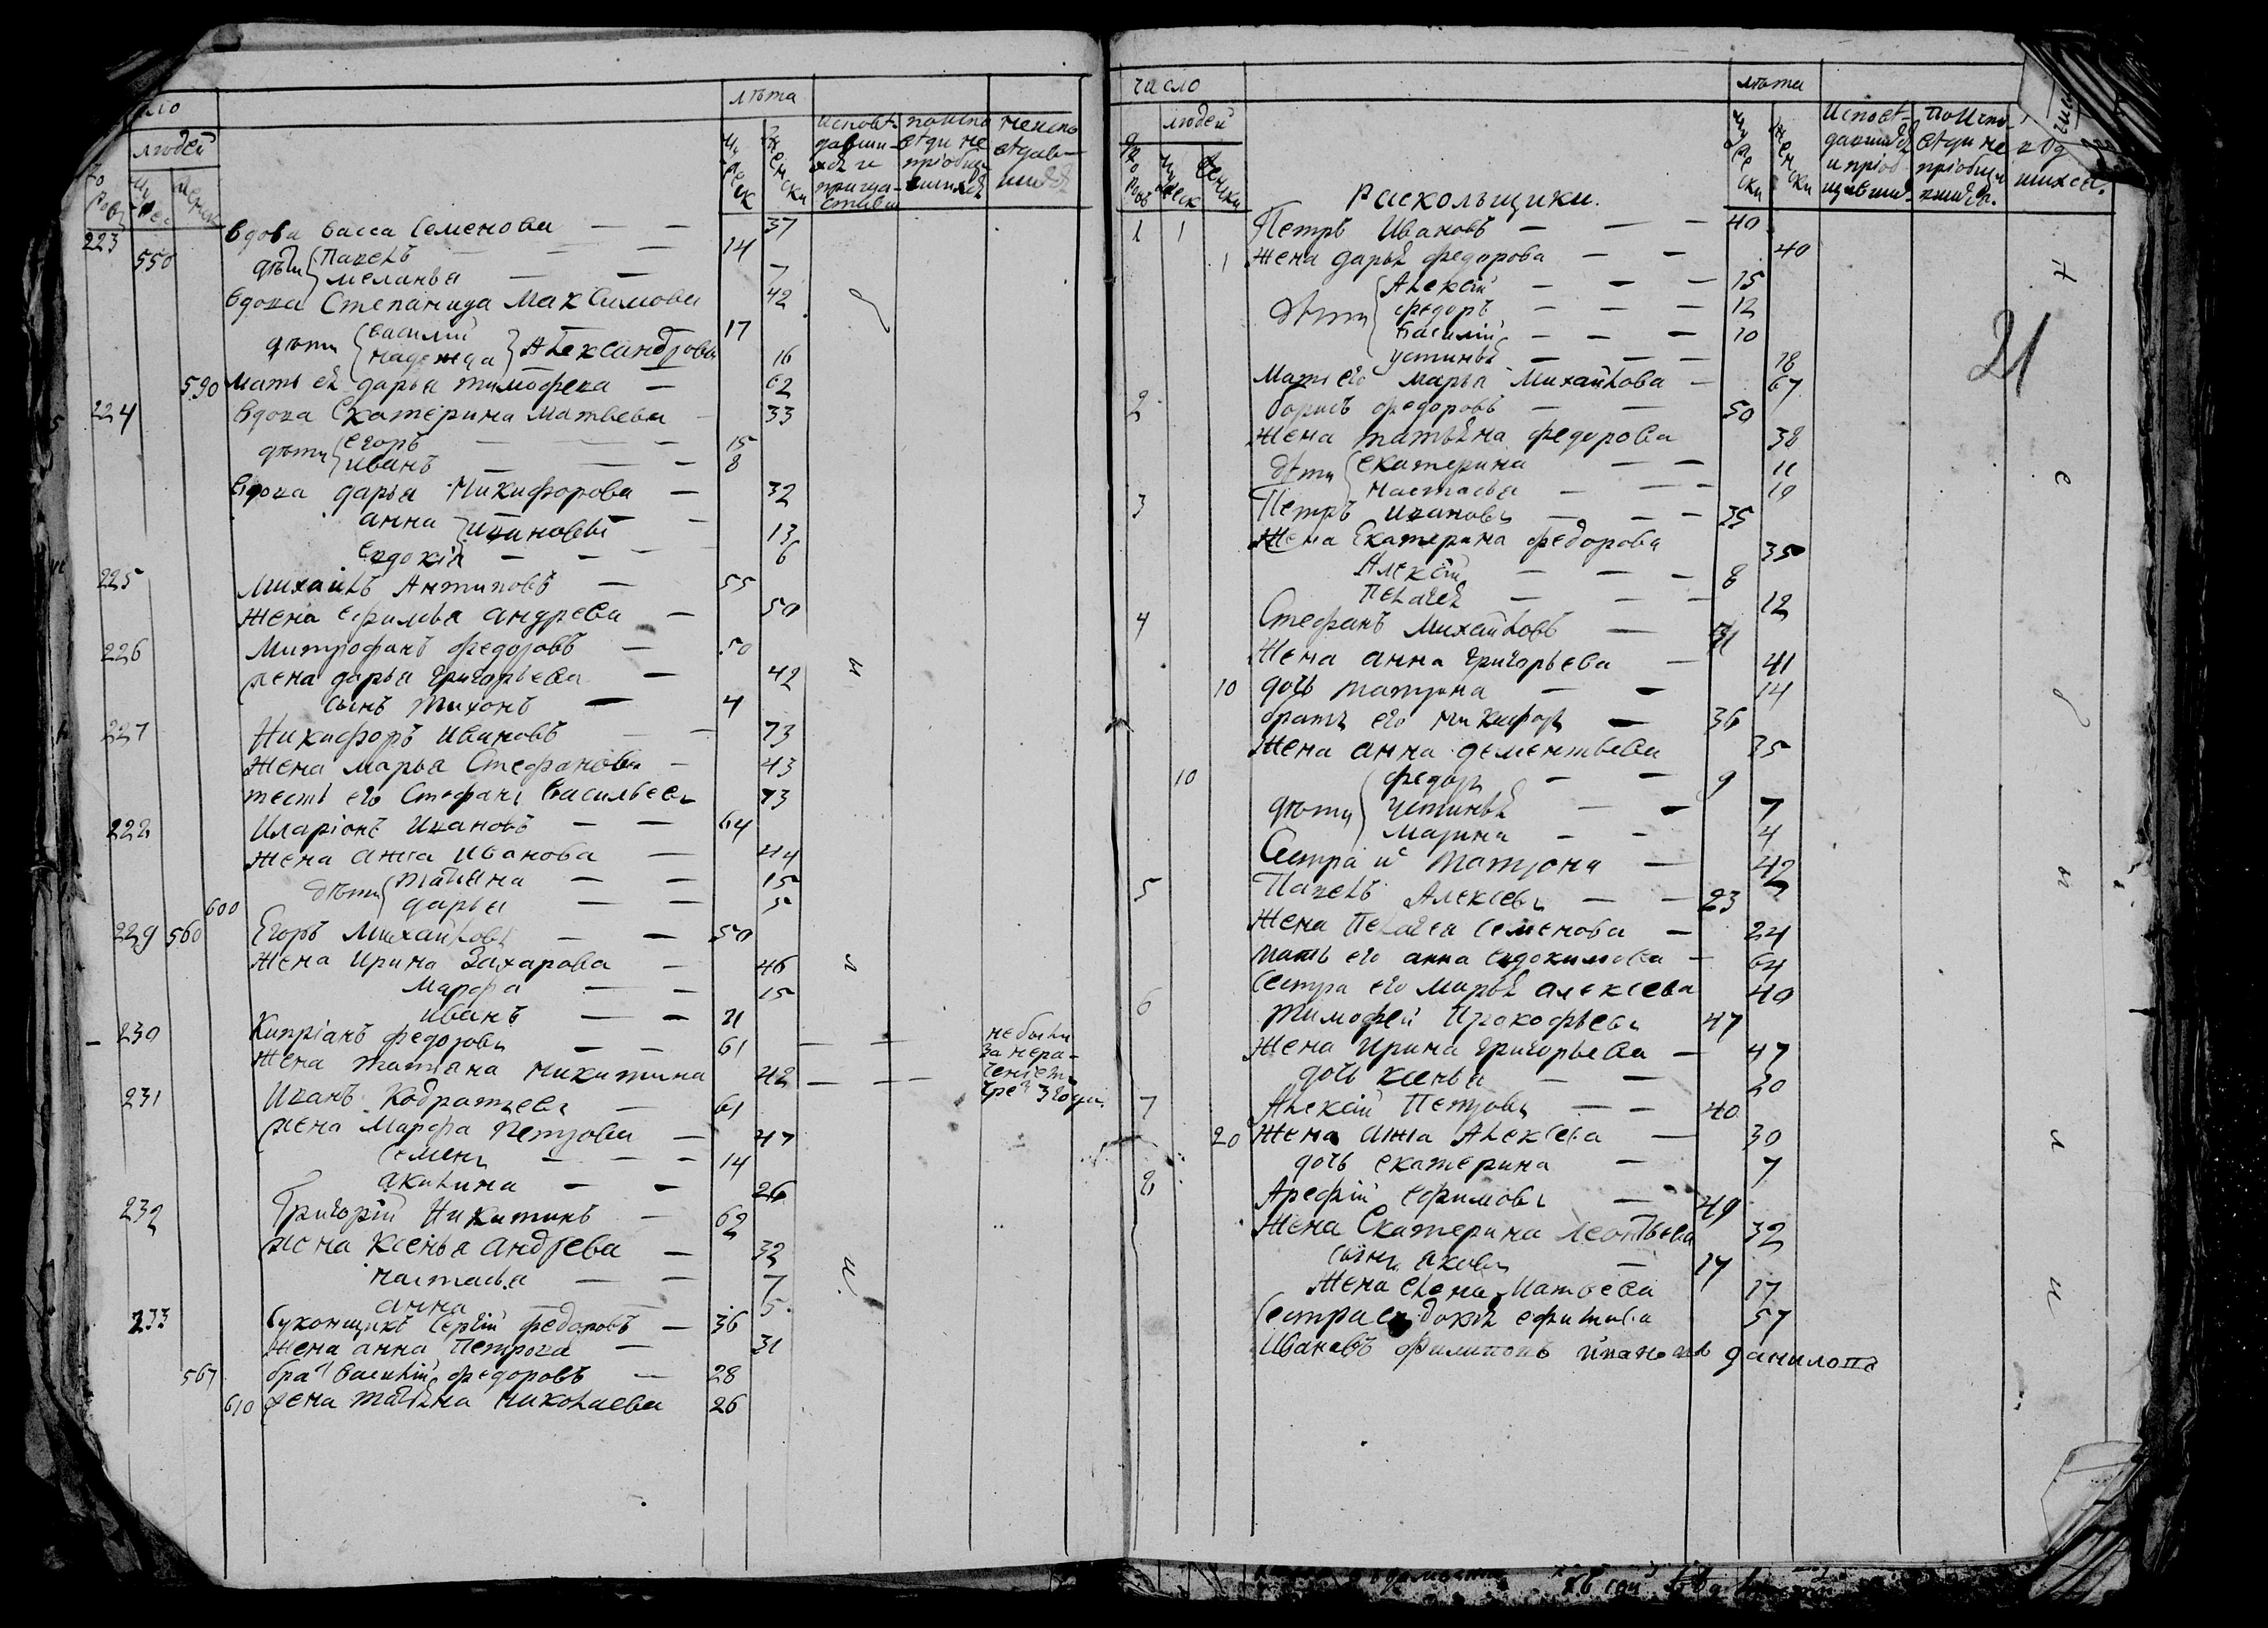 лѣта
людей
223 вдова васса Семенова — — 37
550 дѣти Павелъ — — — 14
меланья — — 7
вдова Степанида Максимова 42
дѣти василій 17
надежда Александровы 16
590 мать ея дарья тимофеева — 62
224 вдова Екатерина Матвеева 33
дѣти егоръ — — — 15
иванъ — — — 8
вдова дарья Никифорова — 32
анна ивановы — 13
Евдокія — — — 6
225 михайлъ Антиповъ — 55
жена ефимья андреева — 50
226 Митрофанъ федоровъ — 50
жена дарья григорьева — 42
сынъ тихонъ — 4
227 Никифоръ Ивановъ — — 73
жена марья Стефанова — 43
тесть его Стефанъ Васильевъ 73
228 Иларіонъ Ивановъ — — 64
жена анна Иванова — 44
дѣти татіана — — 15
600 дарья — — 5
229 560 Егоръ Михайловъ — — 50
жена Ирина Захарова — 46
марфа — — 15
иванъ — — 21
230 Кипріанъ федоровъ — — 61 — — не были
за нера-
жена татіана никитина 42 — — —
231 Иванъ Кодратьевъ — 61
жена марфа Петрова — 47
семенъ — — — 14
акилина — — 26
232 Григорій Никитинъ — 62
жена ксенья андреева — 32
настасья — — 7
анна — — 5
233 Суконщикъ Сергій федоровъ — 36
жена анна Петрова — 31
567 братъ василій федоровъ — 28
610 жена татьяна николаева 26
число
лѣта
людей
21
Раскольщики.
1 1 Петръ Ивановъ — — — 40
1 жена дарья федорова — — 40
дѣти Алексій — — — 15
федоръ — — — 12
Василій — — — 10
устинья — — — 18
Мать его марья Михайлова — 67
2 борисъ федоровъ — — 50
жена татьяна федорова 38
дѣти екатерина — — 11
настасья — — — 10
3 Петръ ивановъ — — — 35
жена Екатерина федорова 35
Алексій — — — 8
Пелагея — — — 12
4 Стефанъ Михайловъ — 41
жена анна григорьева — 41
10 дочь матрена — — 14
братъ его никифоръ — 36
жена анна дементьева 35
10 дѣти федоръ — — 9
устинья — — 7
марина — — 4
Сестра их матрона — 42
5 Павелъ Алексіевъ — — 23
жена Пелагея Семенова — 24
мать его анна евдокимова — 64
Сестра его марья алексіева 40
6 Тимофей Прокофьевъ 47
жена Ирина григорьева — 47
дочь ксенья — — 20
7 Алексій Петровъ — — 40
20 жена анна Алексіева — 30
дочь екатерина — 7
8 Арефій ефимовъ — 49
жена Екатерина леонтьева 32
сынъ яковъ — 17
жена елена Матвеева 17
Сестра евдокія ефимова 57
Ивановъ Филипопъ Иванопъ данилопъ